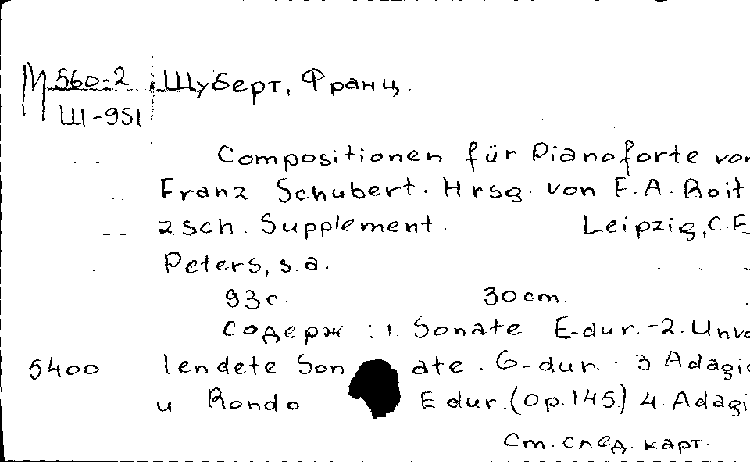 М 560-2 Шуберт, Франц.
Ш-951
Compositionen für Pianoforte von
Franz Schubert. Hrsg. von E.A. Roit
zsch. Supplement. Leipzig, C.F.
Peters, s.a.
93c. 30cm.
Содерж: 1. Sonate E-dur.-2. Unvo
5400 lendete Son ate. G-dur. 3 Adagio
u Rondo E dur. (op.145) 4. Adagi
См. след. карт.